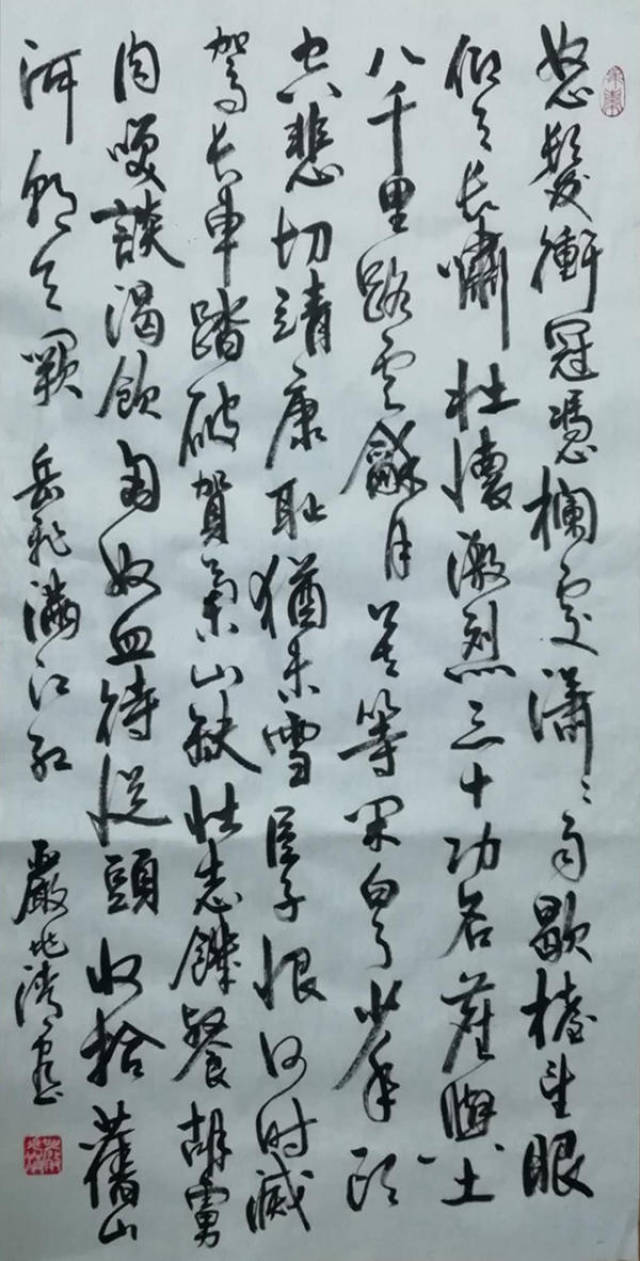 怒髮衝冠憑欄處瀟〻雨歇擡望眼
仰天長嘯壯懷激烈三十功名塵與土
八千里路雲龢月莫等閑白了少年頭
空悲切靖康耻猶未雪臣子恨何时滅
駕長車踏破賀蘭山缺壯志饑餐胡虜
肉笑談渴飲匈奴血待從頭收拾舊山
河朝天闕 岳飛滿江紅 嚴兆